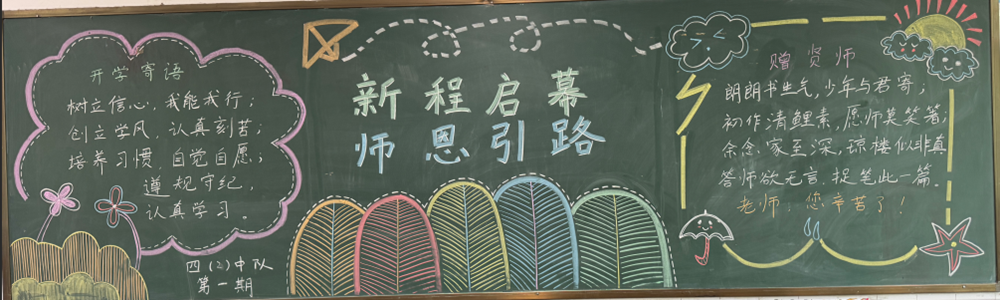 开学寄语
树立信心,我能我行;
创立学风,认真刻苦;
培养习惯,自觉自愿;
遵规守纪,
认真学习。
四(2)中队
第一期
新程启幕
师恩引路
赠贤师
朗朗书生气,少年与君寄;
初作清鲤素,愿师莫笑著;
余念家至深,琼楼似非真
答师欲无言,提笔此一篇。
老师:您辛苦了!